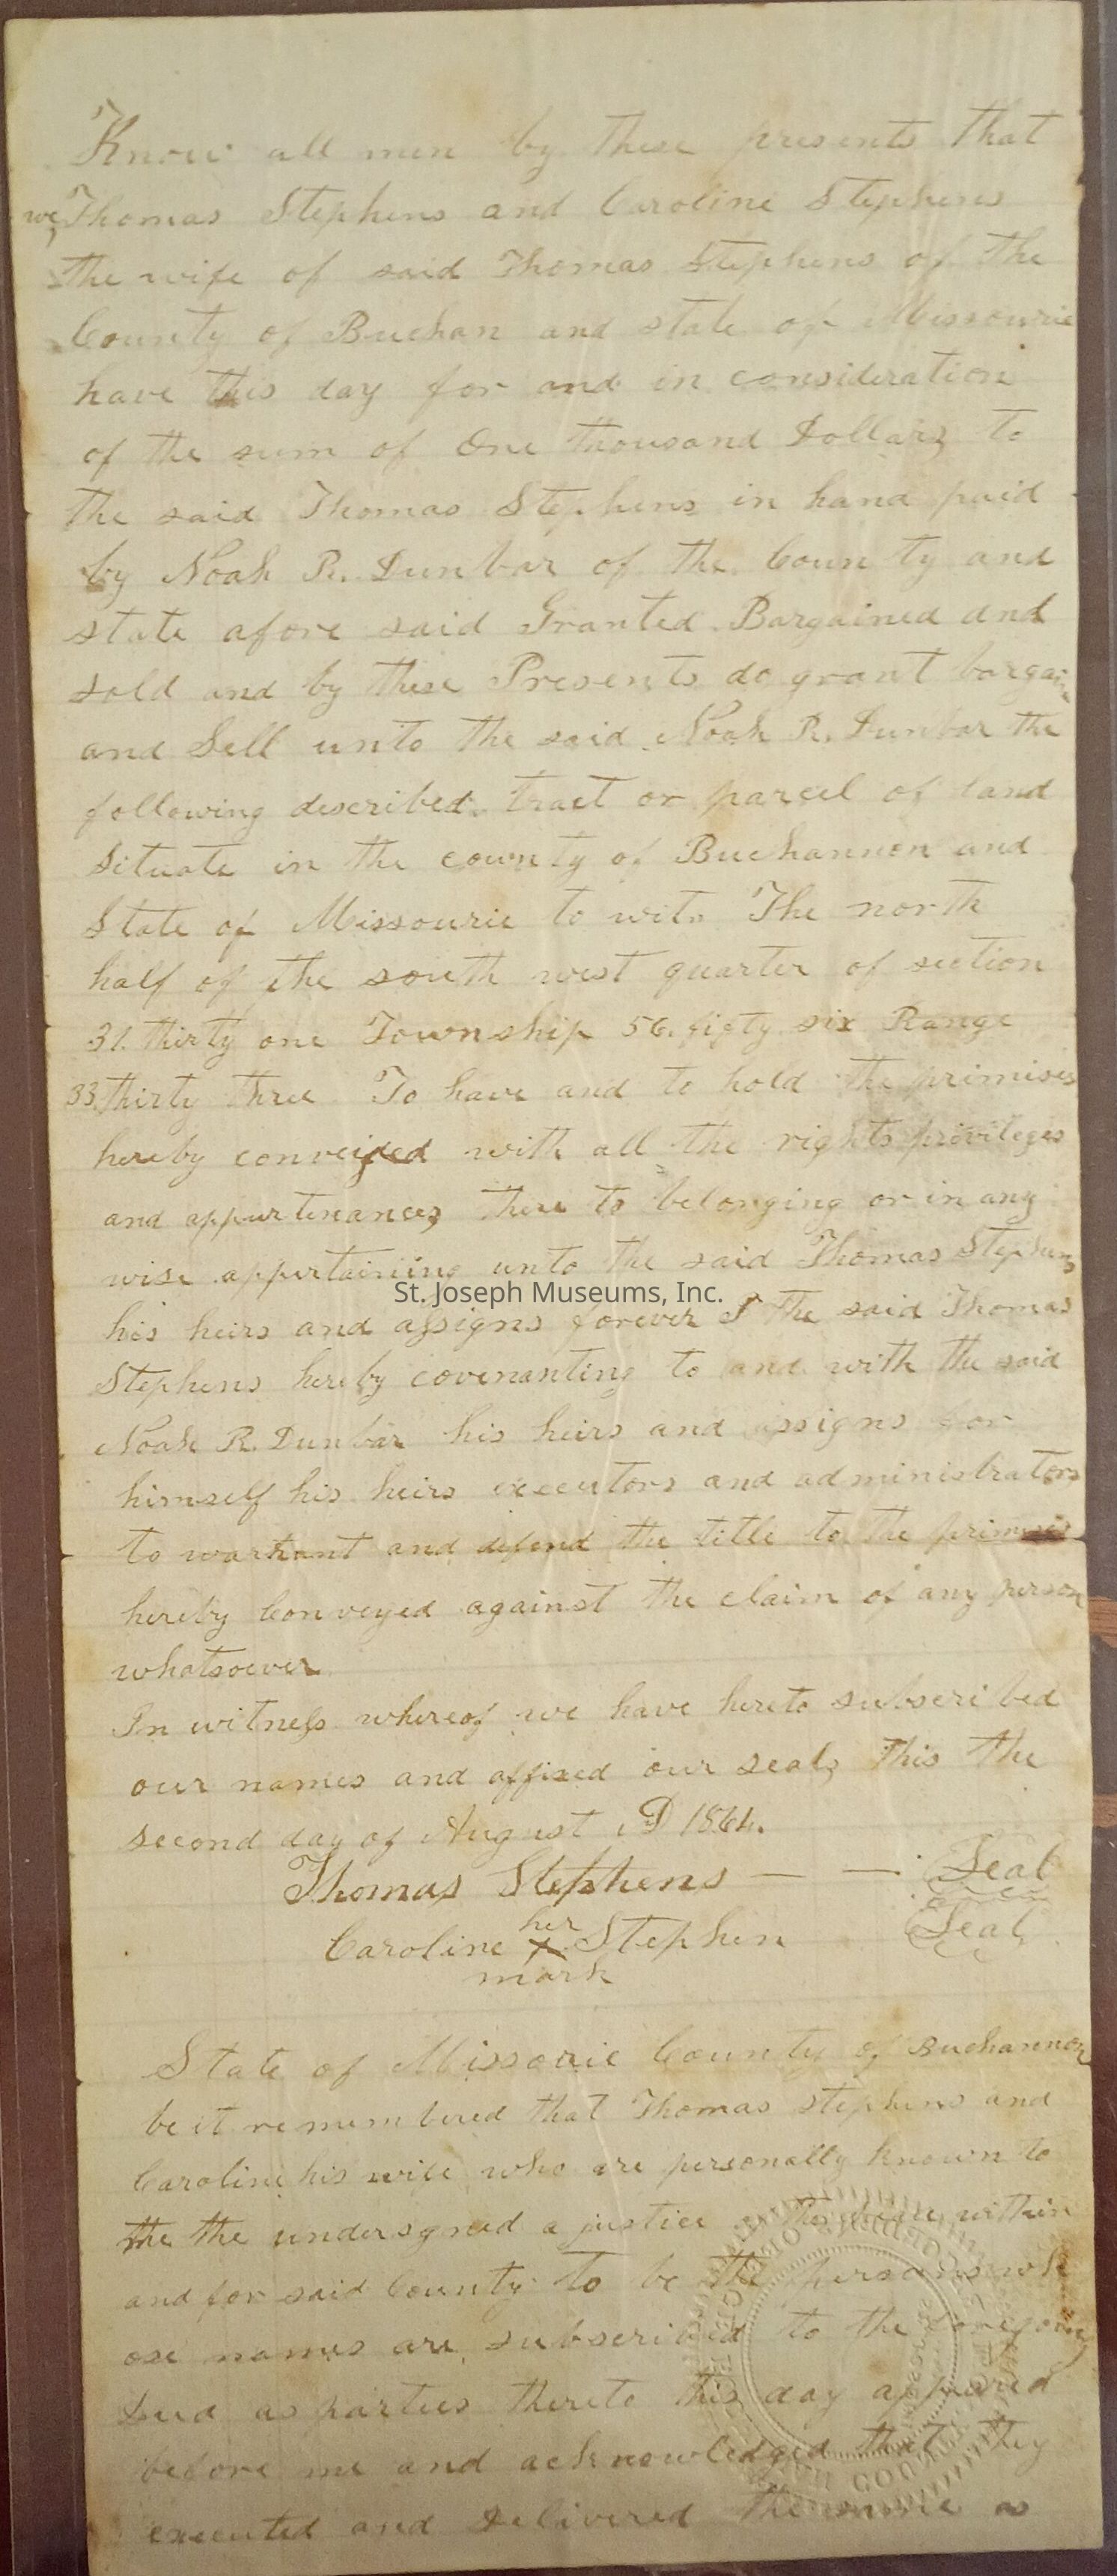 Know all men by these presents that
we, Thomas Stephens and Caroline Stephens
the wife of said Thomas Stephens of the
County of Buchan and state of Missourie
have this day for and in consideration
of the sum of One thousand Dollars to
the said Thomas Stephens in hand paid
by Noah R. Dunbar of the County and
state afore said Granted Bargained and
sold and by these Presents do grant bargain
and Sell unto the said Noah R. Dunbar the
following described tract or parcel of land
Situate in the county of Buchannon and
State of Missourie to wit. The north
half of the south west quarter of section
31. thirty one Township 56. fifty six Range
33. thirty three To have and to hold the primises
hereby conveiyed with all the rights privileges
and appurtenances there to belonging or in any
wise appertaining unto the said Thomas Stephens
St. Joseph Museums, Inc.
his heirs and assigns forever I the said Thomas
Stephens hereby covenanting to and with the said
Noah R. Dunbar his heirs and assigns for
himself his heirs executors and administrators
to warrant and defend the title to the primises
hereby Conveyed against the claim of any person
whatsoever
In witness whereof we have hereto subscribed
our names and affixed our seals this the
second day of August AD 1864.
Thomas Stephens — — Seal
her
Caroline X Stephen Seal
mark
State of Missorie County of Buchannon
be it remembered that Thomas Stephens and
Caroline his wife who are personally known to
the the undersgned a justice within
and for said County to be the persons wh
ose names are subscribed to the foregoing
deed as parties thereto this day appeared
before me and acknowledged that they
executed and Delivered the same as